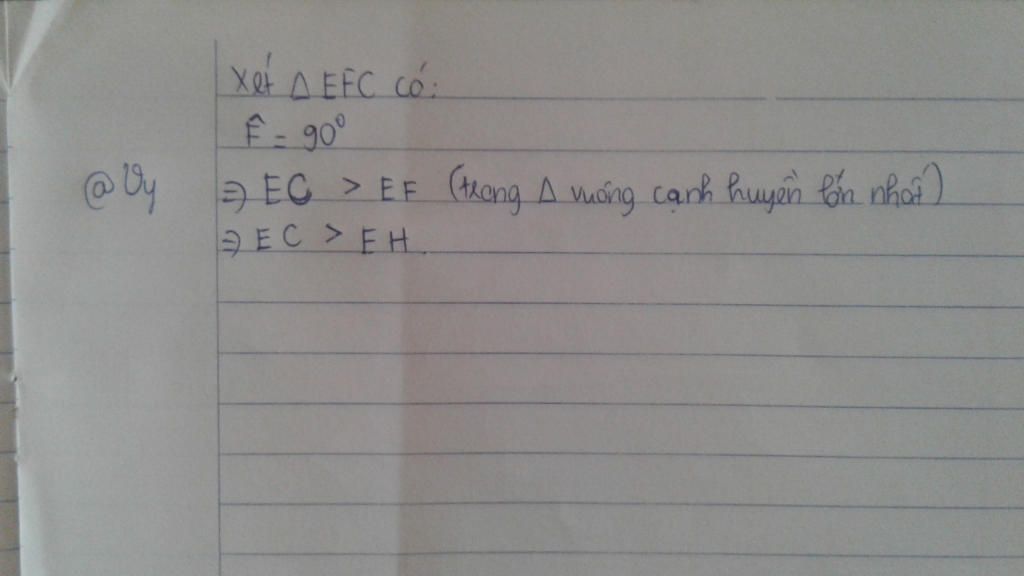 Xét Δ EFC có:
F̂ = 90⁰
@Vy
⇒ EC > EF (trong Δ vuông cạnh huyền lớn nhất)
⇒ EC > EH.